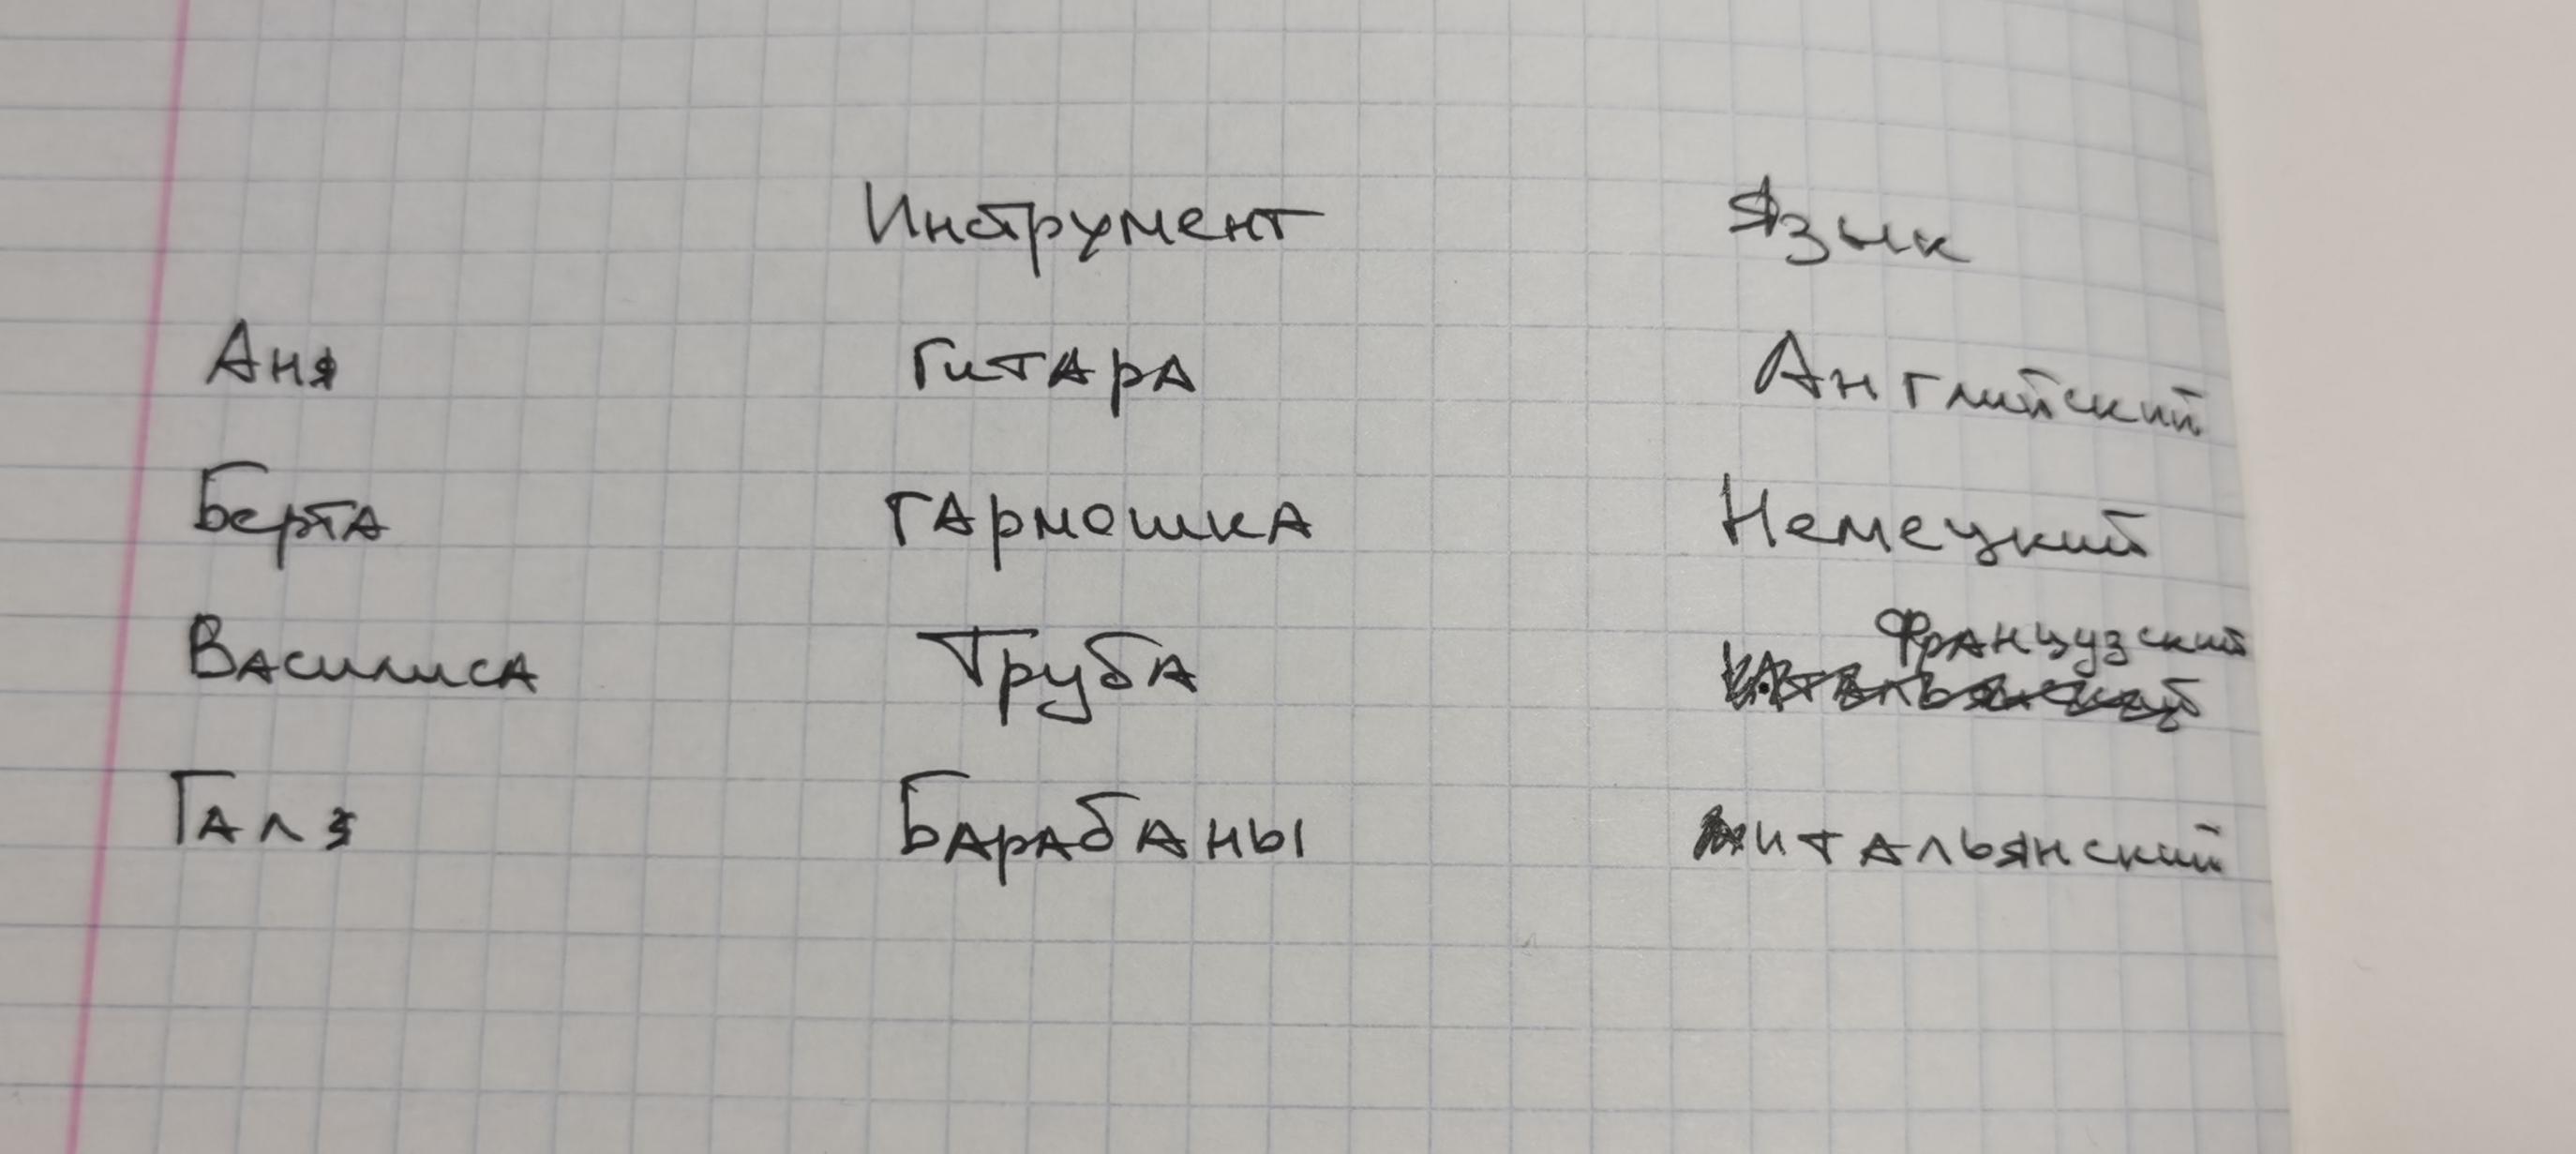 Инструмент Язык
Аня гитара Английский
Берта гармошка Немецкий
Французский
Василиса Труба
Галя Барабаны итальянский